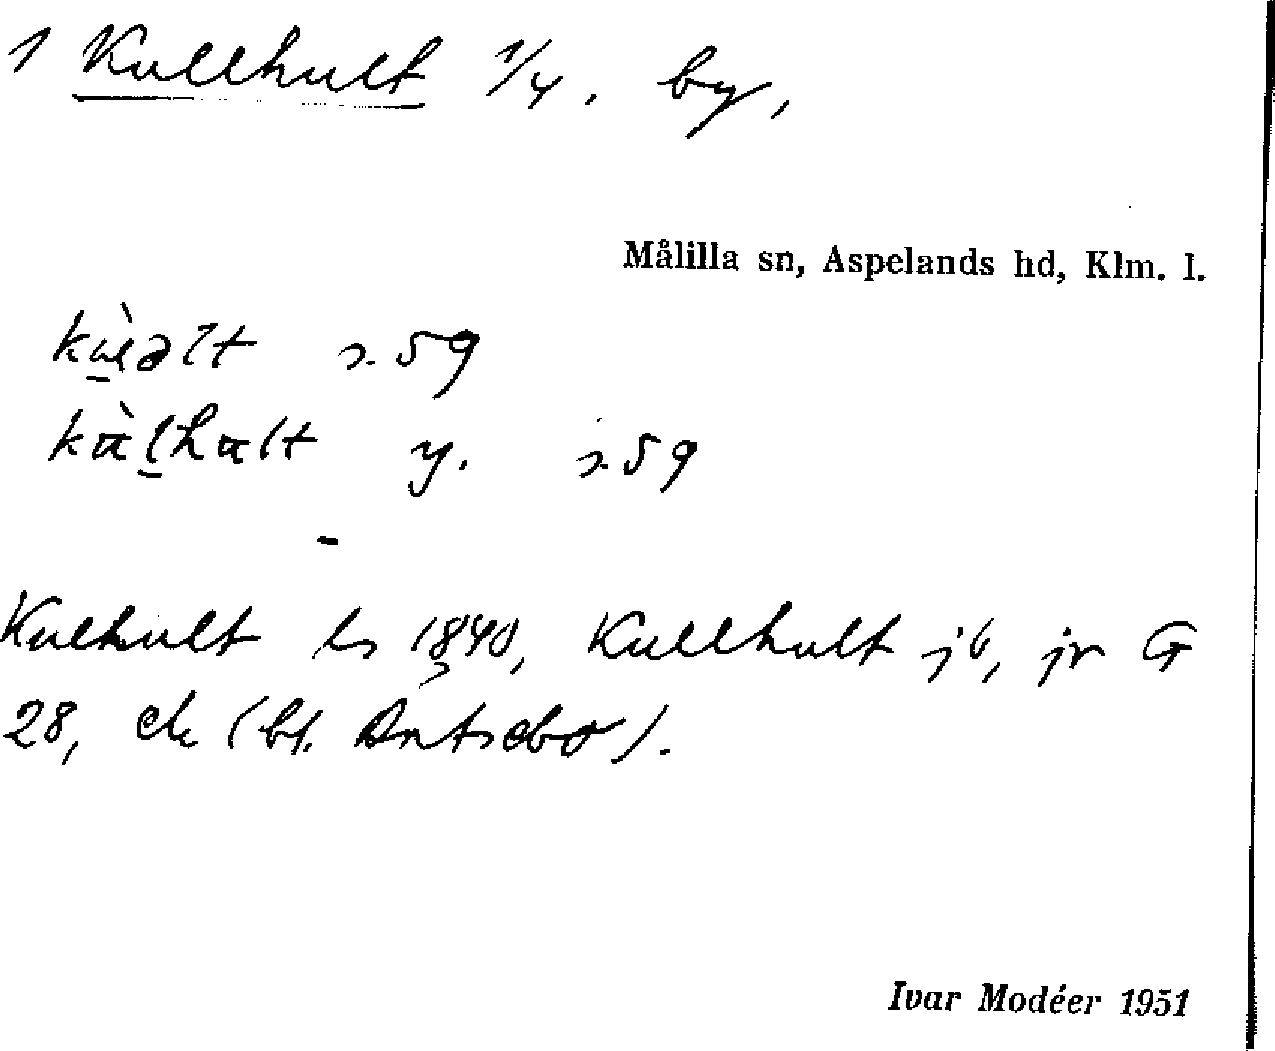 1 Kullhult 1/4, by,
Målilla sn, Aspelands hd, Klm. l.
s. 59
y. s. 59
-
Kulhult hs 1840, Kullhult jb, jr G
28, ek (bl.
Ivar Modéer 1951